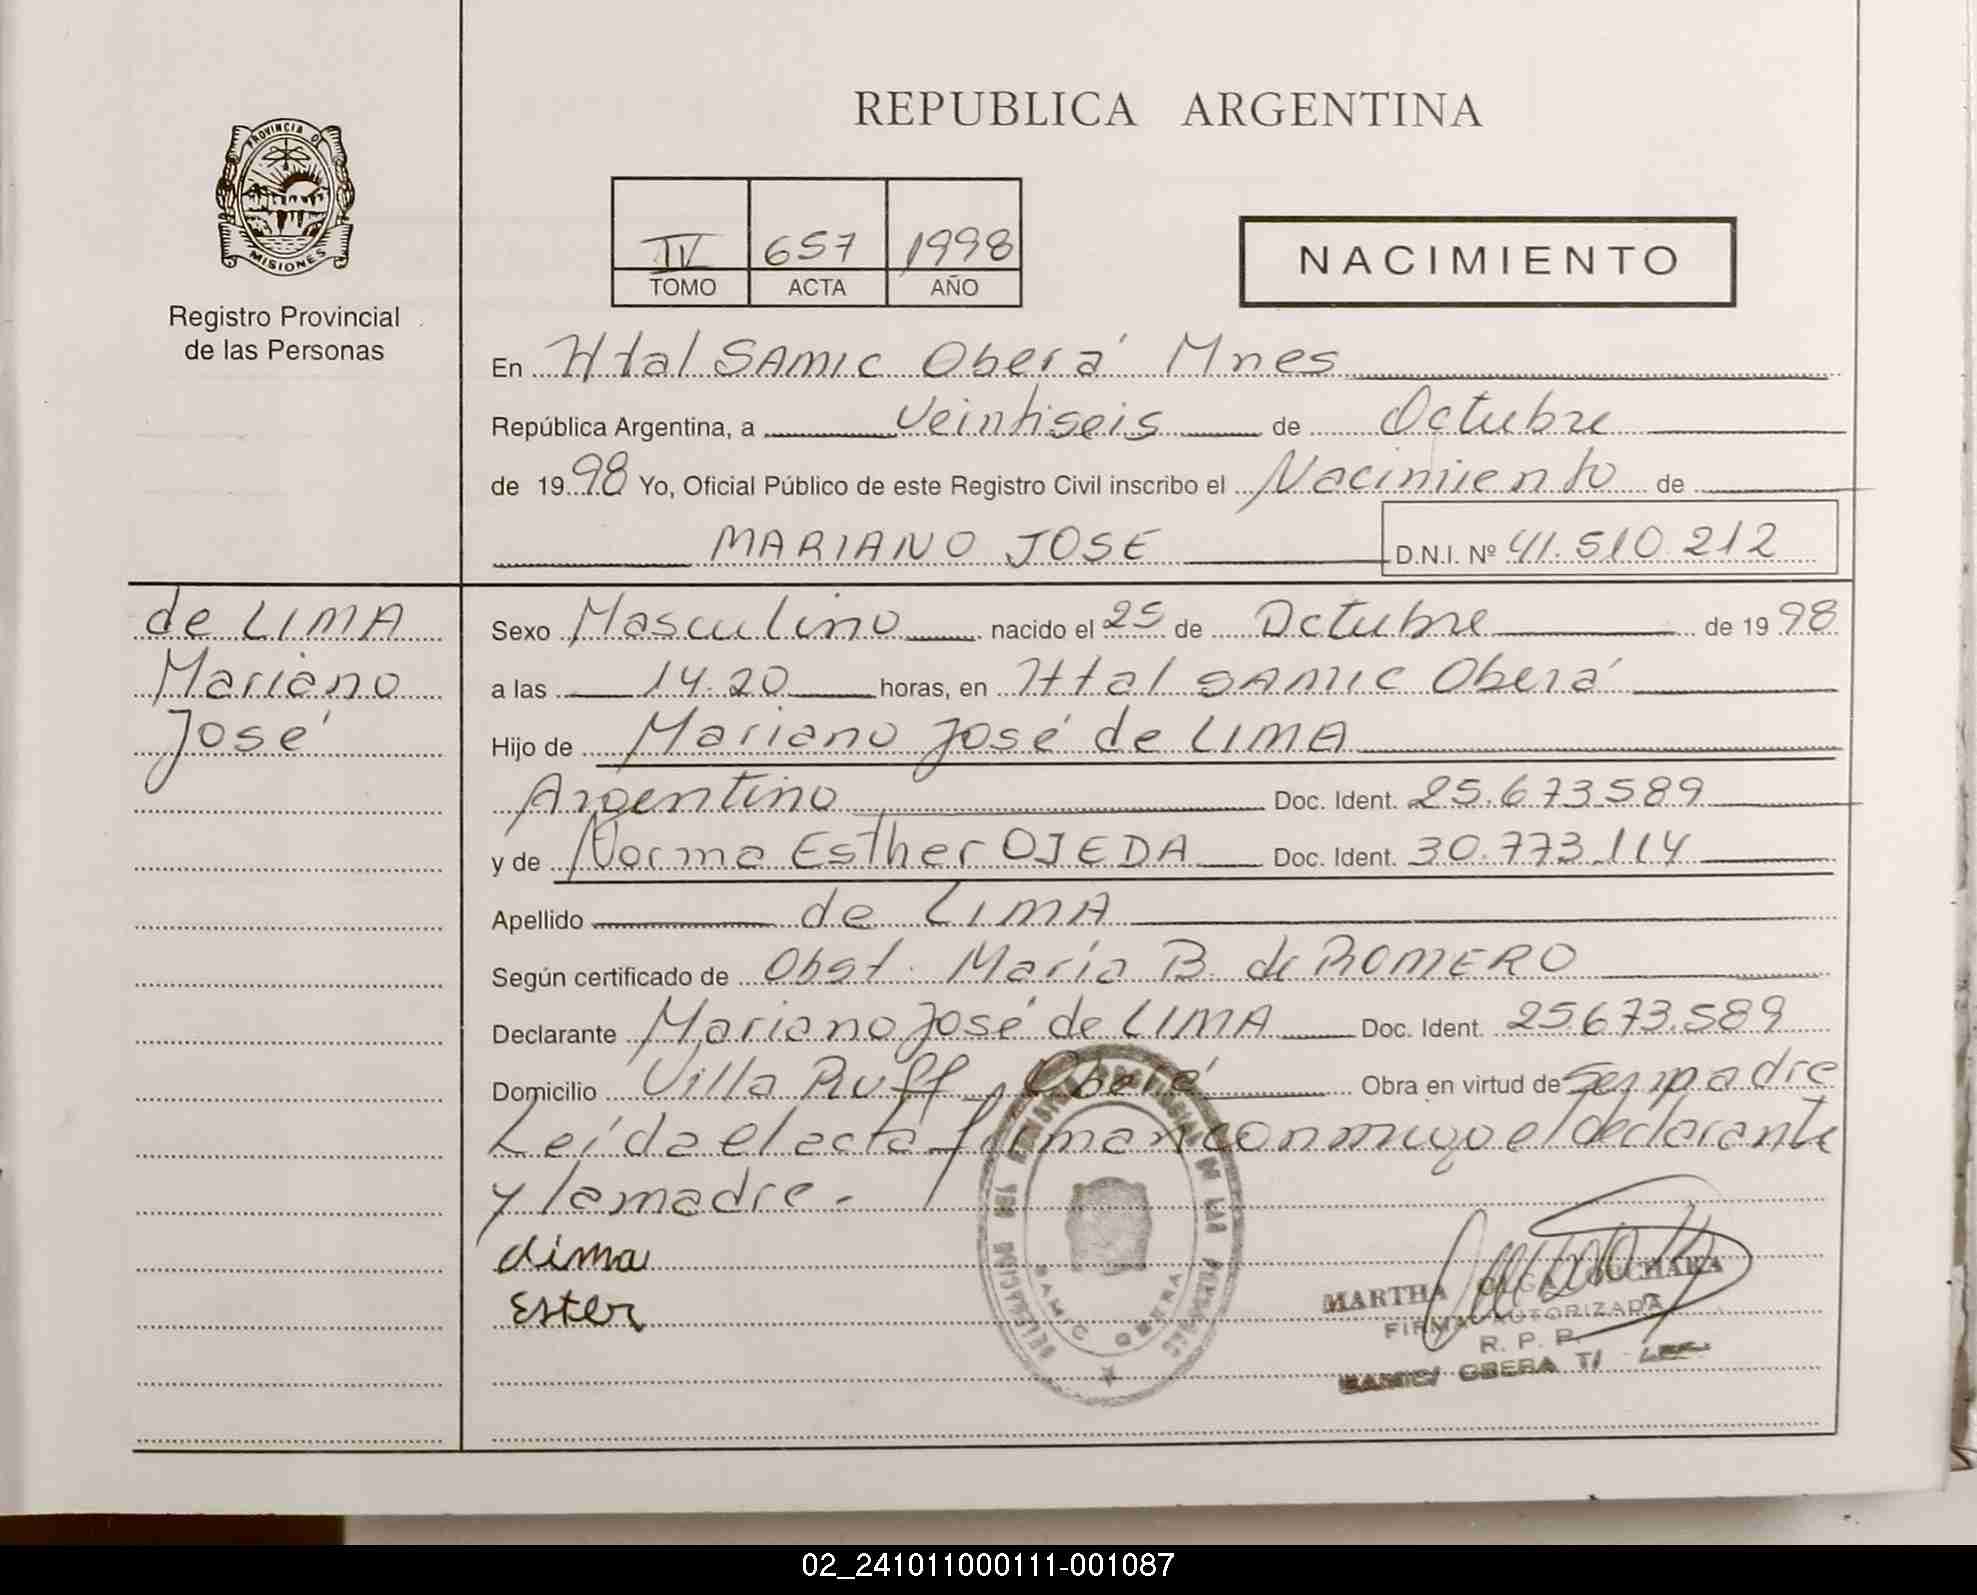 REPUBLICA ARGENTINA
PROVINCIA DE
MISIONES
Registro Provincial
de las Personas
IV 657 1998
TOMO ACTA AÑO
NACIMIENTO
En Htal SAMIC Oberá Mnes
República Argentina, a veintiseis de Octubre
de 1998 Yo, Oficial Público de este Registro Civil inscribo el Nacimiento de
MARIANO JOSE D.N.I. Nº 41.510.212
de LIMA
Mariano
José
Sexo Masculino nacido el 25 de Octubre de 1998
a las 14.20 horas, en Htal SAMIC Oberá
Hijo de Mariano José de LIMA
Argentino Doc. Ident. 25.673.589
y de Norma Esther OJEDA Doc. Ident. 30.773.114
Apellido de LIMA
Según certificado de Obst. María B. de ROMERO
Declarante Mariano José de LIMA Doc. Ident. 25673.589
Domicilio Villa Ruff Oberá Obra en virtud de ser padre
Leída el acta firman conmigo el declarante
y la madre.-
Lima
Ester
DELEGACION DEL REGISTRO PROVINCIAL DE LAS PERSONAS
SAMIC OBERA
MARTHA OLGA
FIRMA AUTORIZADA
R. P. P.
SAMIC/ OBERA
02_241011000111-001087